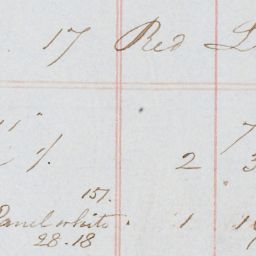 17 Red L
11 7
1/. 2 3
151.
Panel white 1 1
28.18